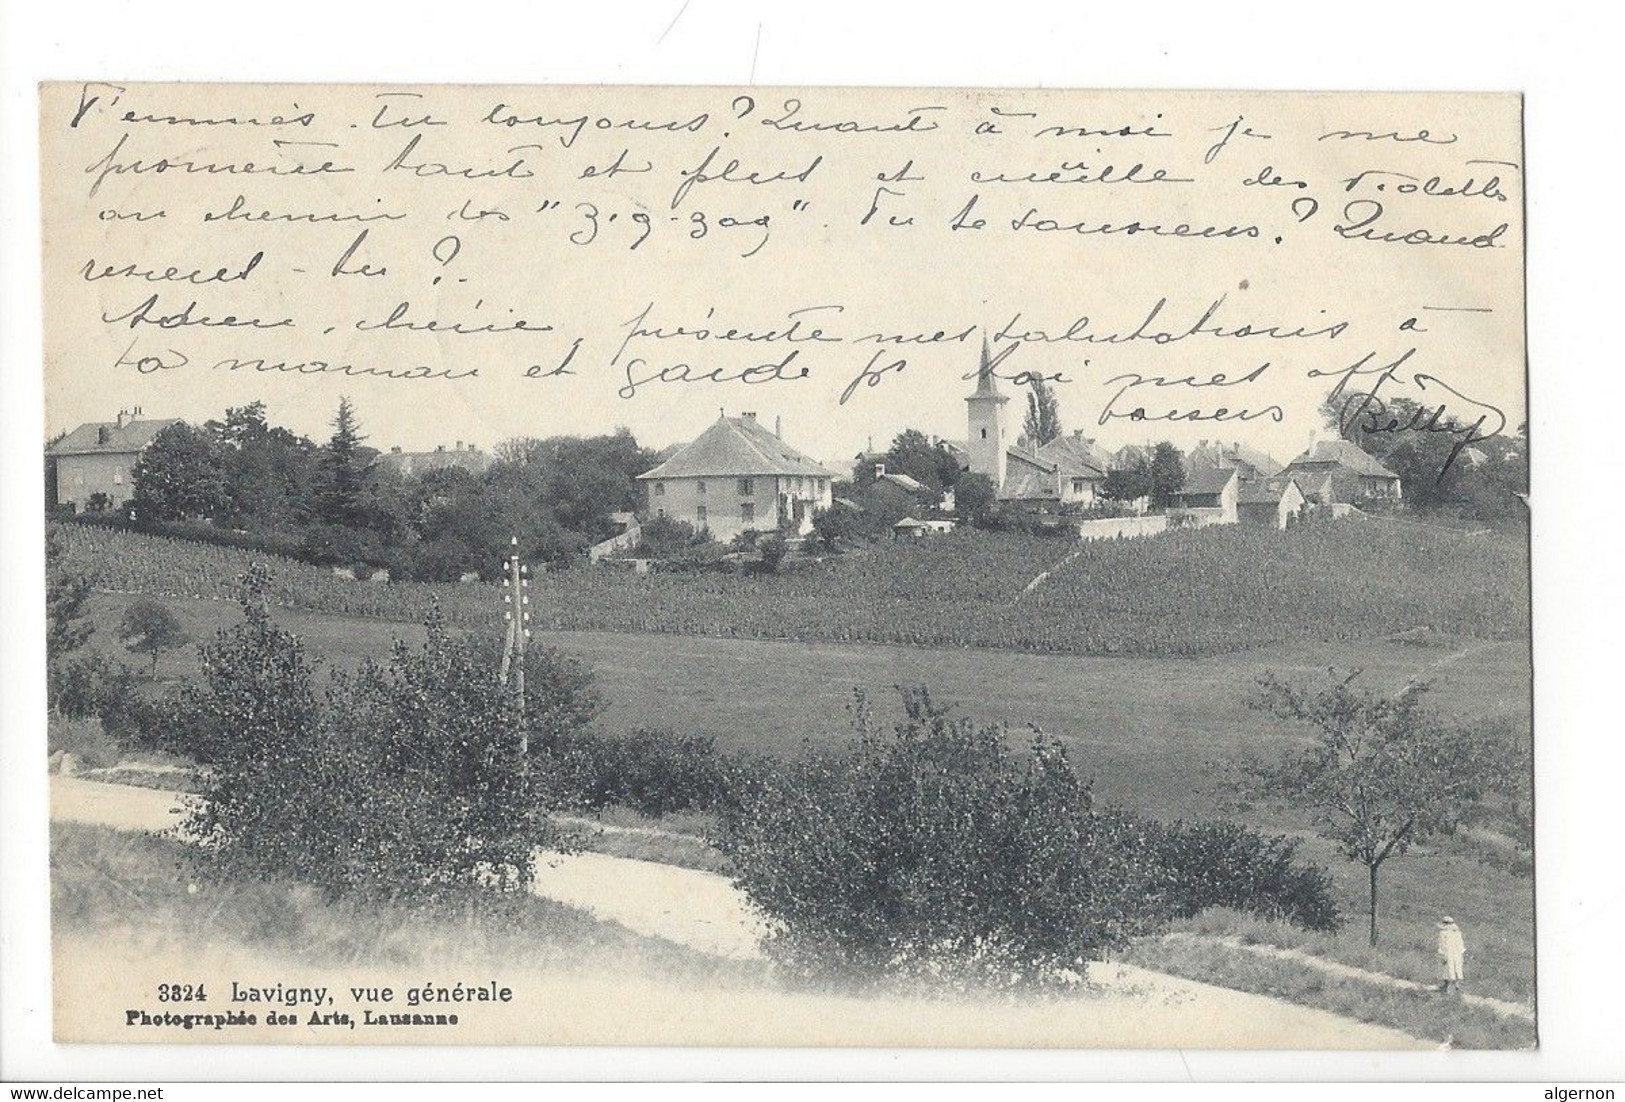 T'ennuies-tu toujours? Quant à moi je me
promène tant et plus et cueille des violettes
au chemin des "zig-zag". Tu te souviens? Quand
reviens-tu?
Adieu, chérie, présente mes salutations à
ta maman et garde pr toi mes aff.
baisers Betty
3324 Lavigny, vue générale
Photographie des Arts, Lausanne
delcampe.net
algernon